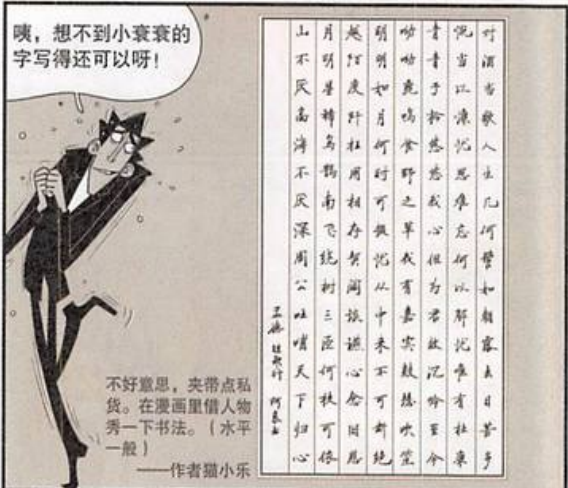 咦，想不到小衰衰的
字写得还可以呀！
对酒当歌人生几何譬如朝露去日苦多
慨当以慷忧思难忘何以解忧唯有杜康
青青子衿悠悠我心但为君故沉吟至今
呦呦鹿鸣食野之苹我有嘉宾鼓瑟吹笙
明明如月何时可掇忧从中来不可断绝
越陌度阡枉用相存契阔谈讌心念旧恩
月明星稀乌鹊南飞绕树三匝何枝可依
山不厌高海不厌深周公吐哺天下归心
孟德 短歌行 阿衰书
不好意思，夹带点私
货。在漫画里借人物
秀一下书法。（水平
一般）
——作者猫小乐